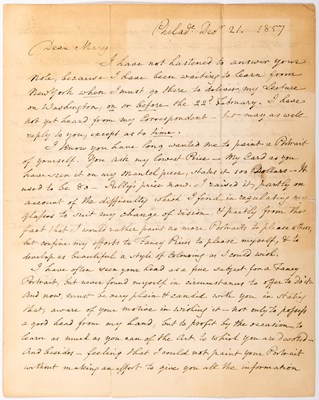 Philad.ᵃ Decʳ 21. 1857
Dear Mary
I have not hastened to answer your
Note, because I have been waiting to learn from
New York when I must go there to deliver my Lecture
on Washington, on or before the 22ᵈ February. I have
not yet heard from my Correspondent – but may as well
reply to you, except as to time.
I know you have long wanted me to paint a Portrait
of yourself. You ask my lowest Price – My Card as you
have seen it on my Mantel piece, states it 100 Dollars – It
used to be 80 – Sully's price now. I raised it, partly on
account of the difficulty which I find in regulating my
glasses to suit my change of vision, & partly from the
fact that I would rather paint no more Portraits to please others,
but confine my efforts to Fancy Pieces to please myself, & to
develop as beautiful a style of Colouring as I could wish.
I have often seen your head as a fine subject for a Fancy
Portrait, but never found myself in circumstances to offer to do it
And now, must be very plain & candid with you in stating
that, aware of your motive in wishing it – not only to possess
a good head from my hand, but to profit by the occasion, to
learn as much as you can of the Art to which you are devoted –
And besides – feeling that I could not paint your Portrait
without making an effort to give you all the information